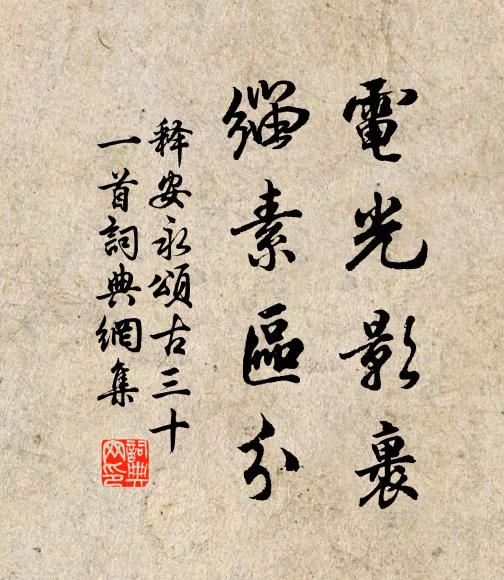 電光影裏
緇素區分
释安永頌古三十
一首詞典網集
詞典网印